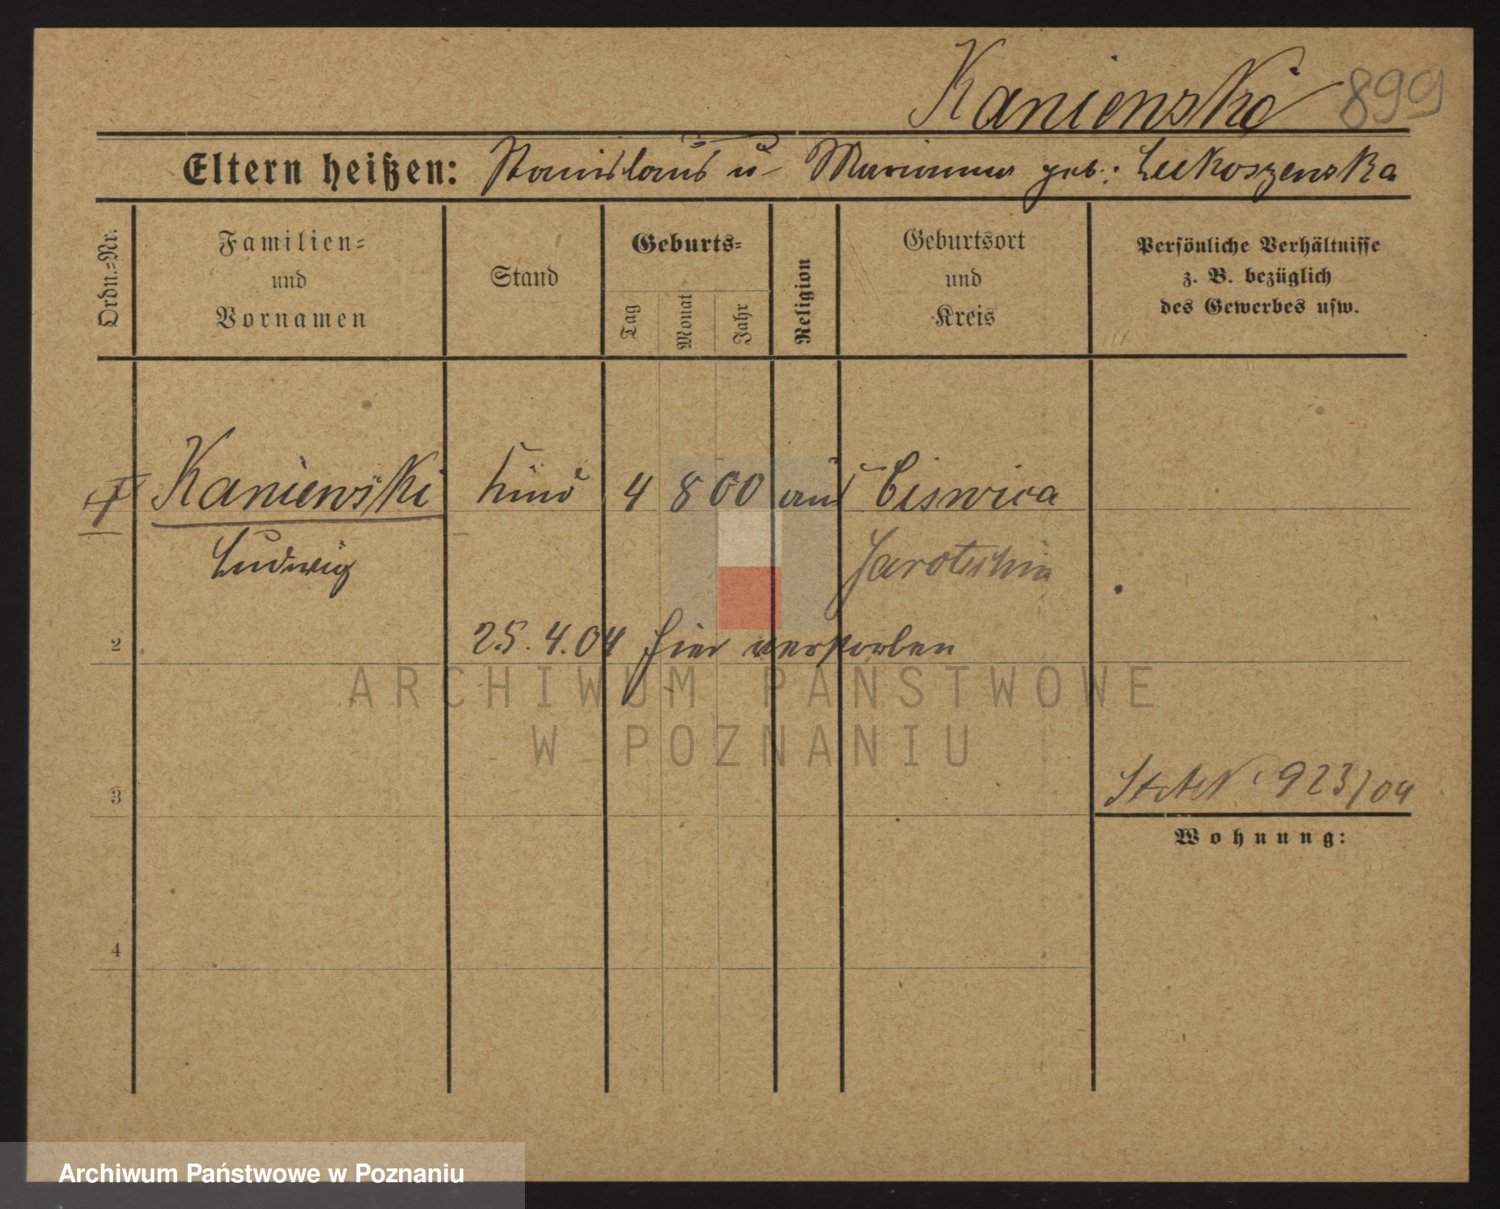 Kanienski 899
Eltern heißen: Stanislaus u. Marianna geb: Lukoszenska
Ordn.-Nr.
Familien-
und
Vornamen
Stand
Geburts-
Tag Monat Jahr
Religion
Geburtsort
und
Kreis
Persönliche Verhältnisse
z. B. bezüglich
des Gewerbes usw.
Kaniewski Kind 4 8 00 Ciswica
Ludwig Jarotschin
2 25.4.04 hier verstorben
ARCHIWUM PAŃSTWOWE
W POZNANIU
3 923/04
Wohnung:
4
Archiwum Państwowe w Poznaniu